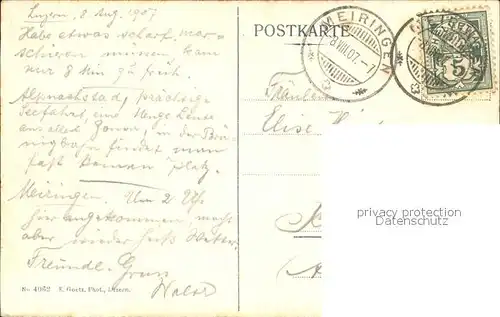 Luzern, 8 Aug. 1907
Habe etwas scharf mar-
schieren müssen, kam
nur 8 Min zu früh.
Alpnachstad, prächtige
Seefahrt, eine Menge Leute
aus allen Zonen, in der Brü-
nigbahn findet man
fast keinen Platz.
Meiringen. Um 2 Uhr
hier angekommen, macht
aber wieder heiß Wetter.
Freundl. Gruss
No. 4962 E. Goetz, Phot., Luzern.
POSTKARTE
MEIRINGEN
8.VIII.07.-7
5
Fräulein
Elise
privacy protection
Datenschutz
www.ansichtskarten-center.de